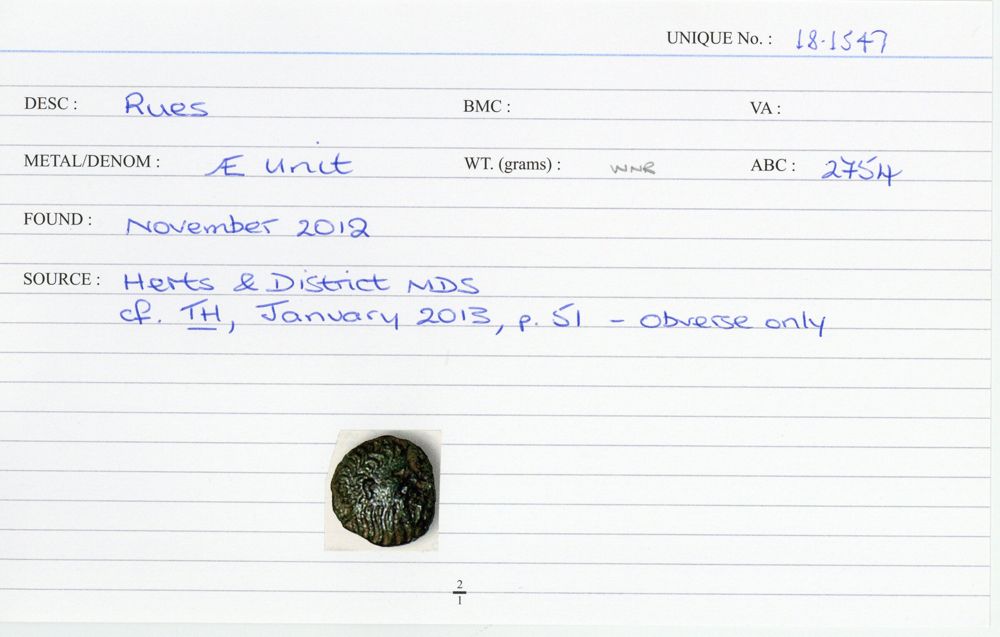 UNIQUE No. : 18.1547
DESC : Rues BMC : VA :
METAL/DENOM : Æ Unit WT. (grams) : WNR ABC : 2754
FOUND : November 2012
SOURCE : Herts & District MDS
cf. TH, January 2013, p. 51 - obverse only
2
1